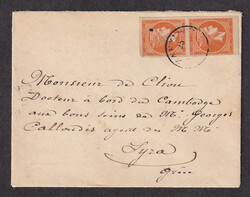 Monsieur de Cliou
Docteur à bord du Cambodge
aux bons soins de Mr. Georges
agent des M. M.
Syra
Grèce